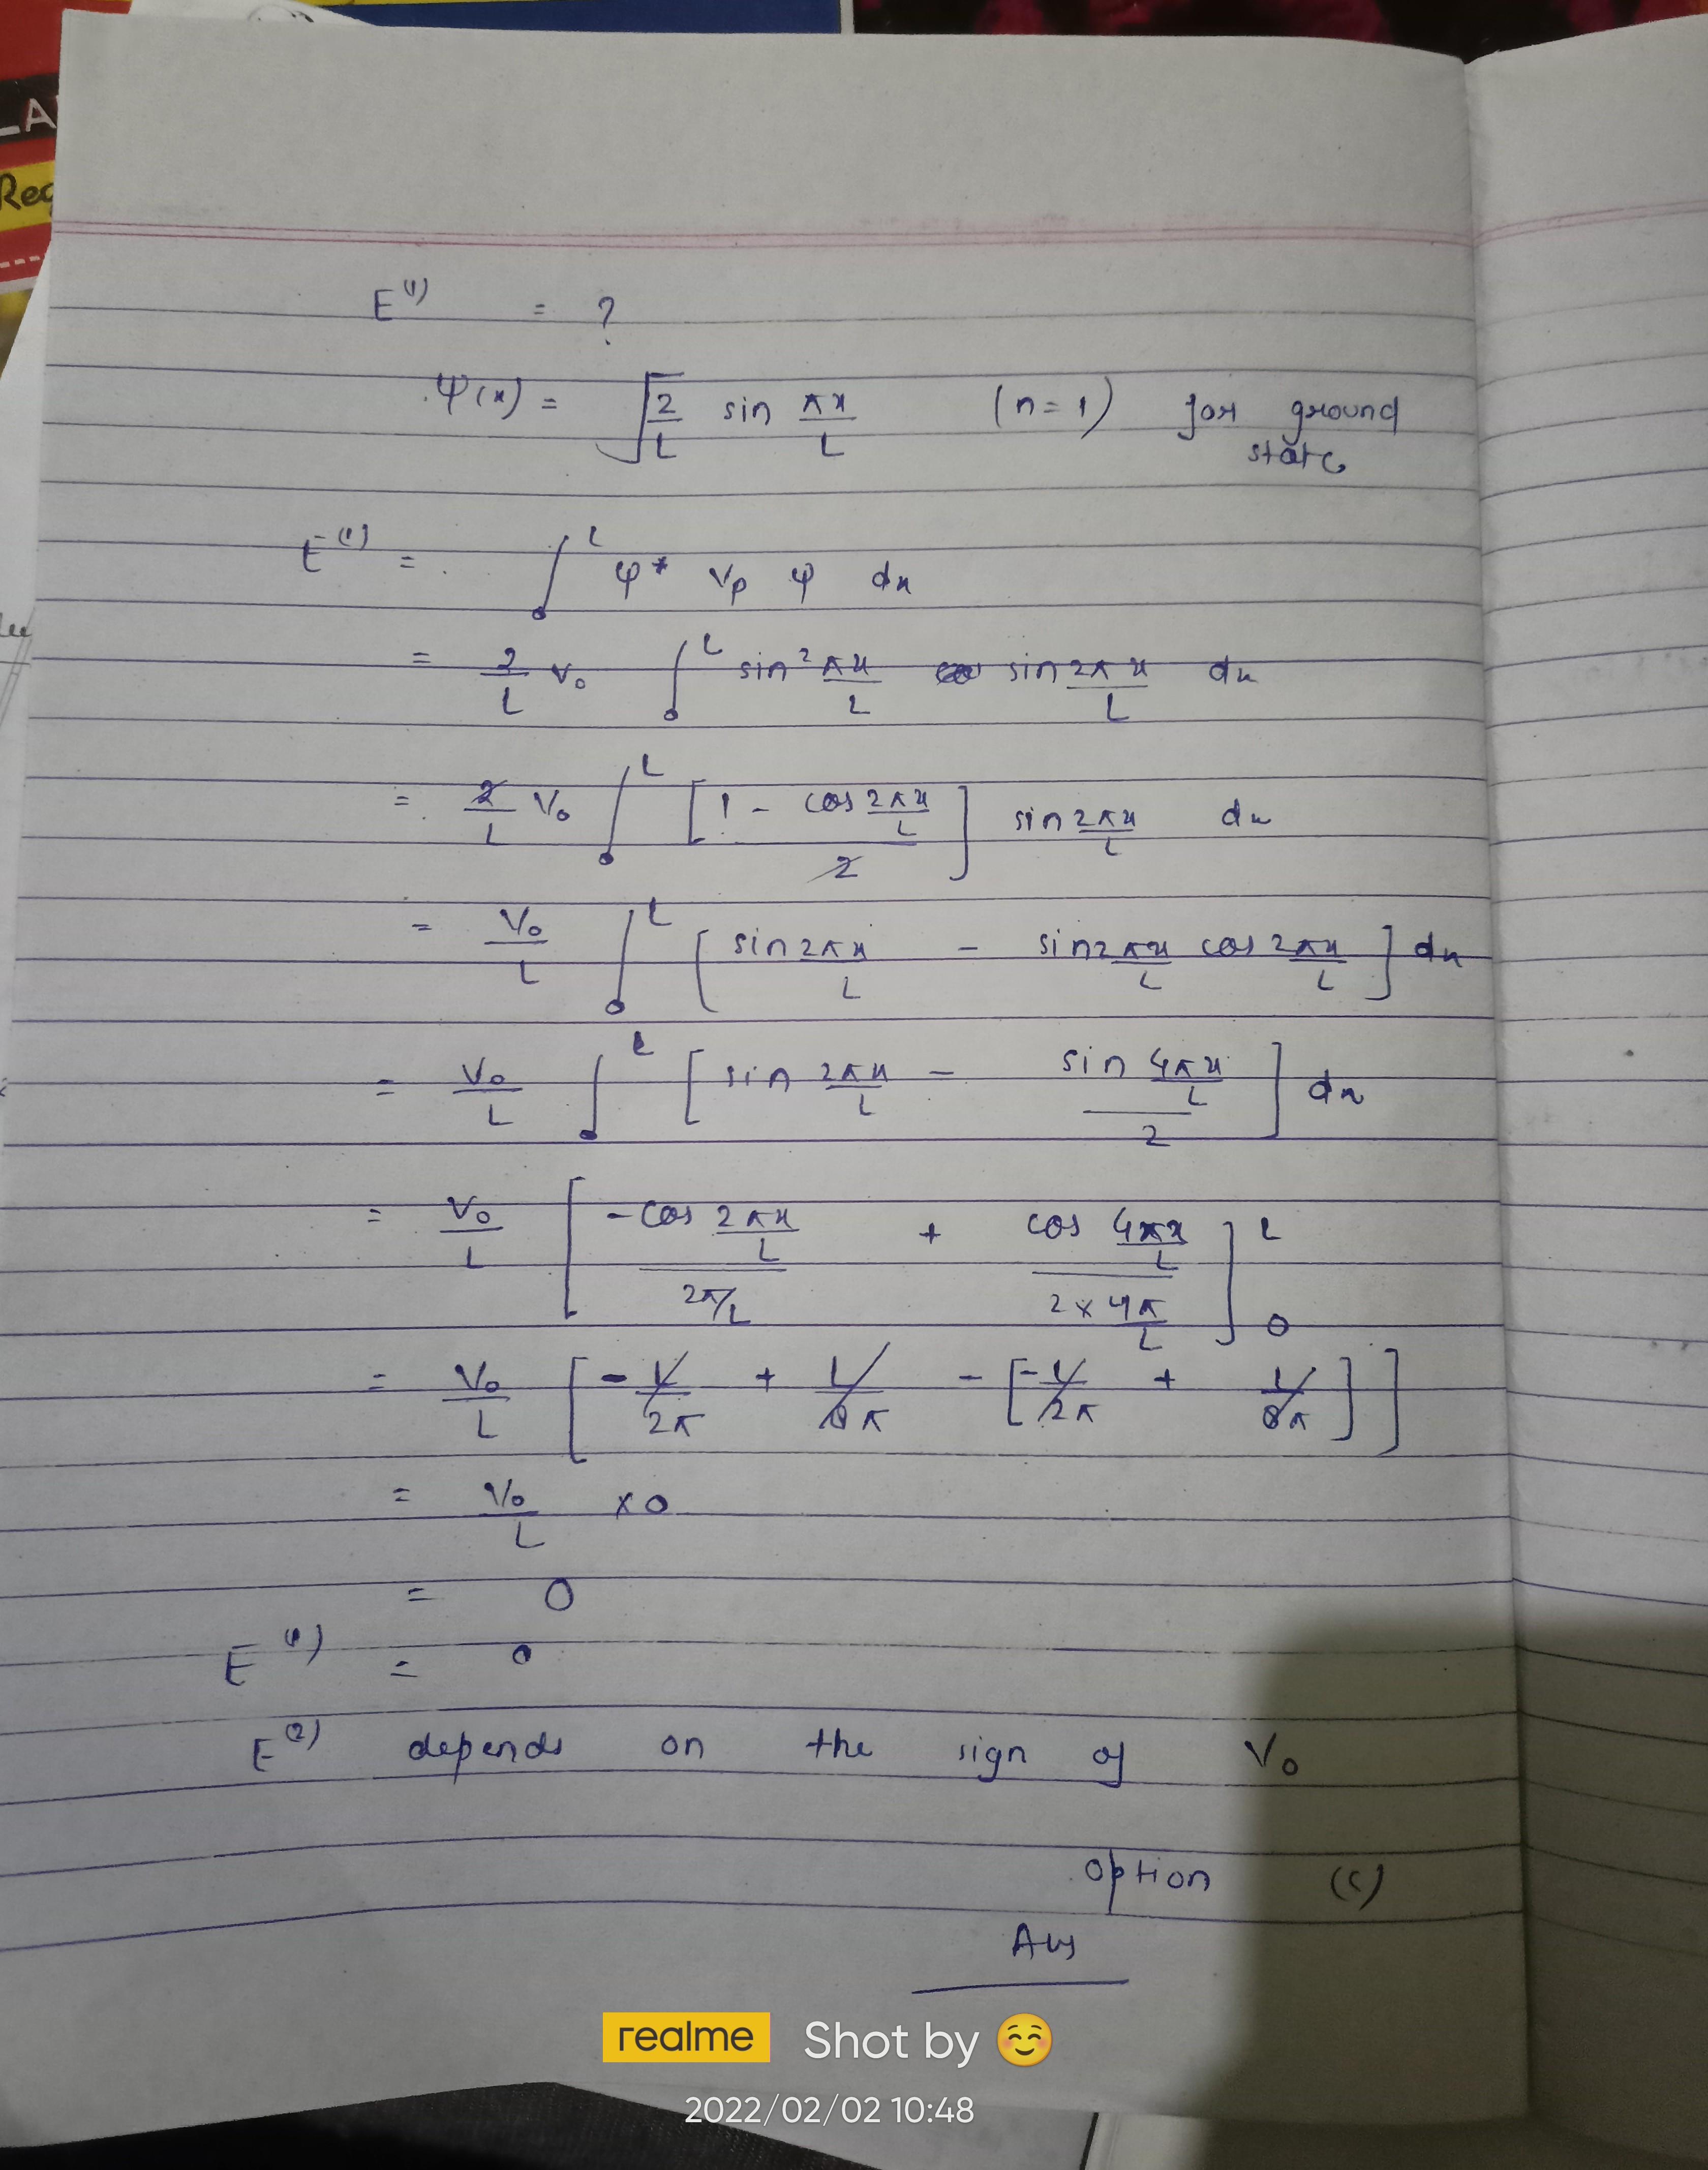 LA
Reg
E⁽¹⁾ = ?
ψ(x) = √(2/L) sin πx/L (n=1) for ground
state
E⁽¹⁾ = ∫₀ᴸ ψ* Vp ψ dx
= 2/L V₀ ∫₀ᴸ sin² πx/L sin 2πx/L dx
= 2/L V₀ ∫₀ᴸ [(1 - cos 2πx/L)/2] sin 2πx/L dx
= V₀/L ∫₀ᴸ [sin 2πx/L - sin 2πx/L cos 2πx/L] dx
= V₀/L ∫₀ᴸ [sin 2πx/L - (sin 4πx/L)/2] dx
= V₀/L [(-cos 2πx/L)/(2π/L) + (cos 4πx/L)/(2 × 4π/L)]₀ᴸ
= V₀/L [-L/2π + L/8π - [-L/2π + L/8π]]
= V₀/L × 0
= 0
E⁽¹⁾ = 0
E⁽²⁾ depends on the sign of V₀
option (c)
Ans
realme Shot by ☺️
2022/02/02 10:48